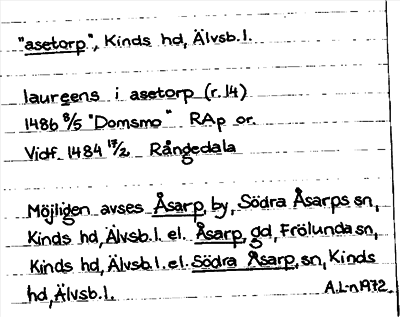 "asetorp", Kinds hd, Älvsb.l.
laureens i asetorp (r. 14)
1486 8/5 "Domsmo" RAp or.
Vidf. 1484 17/2 Rångedala
Möjligen avses Åsarp, by, Södra Åsarps sn,
Kinds hd, Älvsb.l. el. Åsarp, gd, Frölunda sn,
Kinds hd, Älvsb.l. el. Södra Åsarp, sn, Kinds
hd, Älvsb.l.
A.L-n 1972.